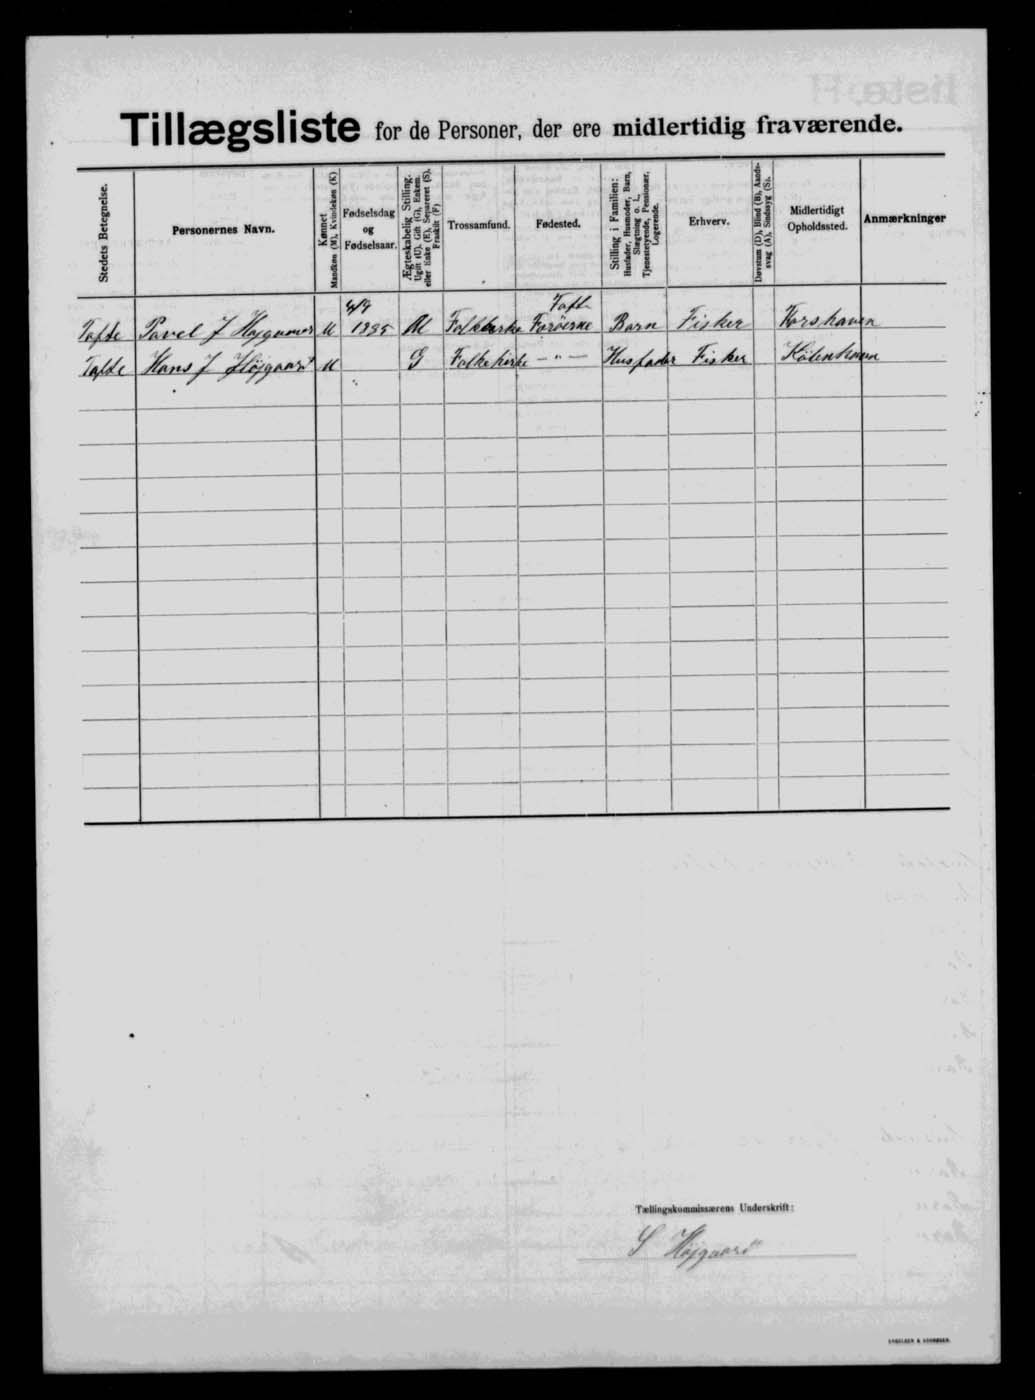 Tillægsliste for de Personer, der ere midlertidig fraværende.
Stedets Betegnelse.
Personernes Navn.
Kønnet
Mandkøn (M), Kvindekøn (K)
Fødselsdag
og
Fødselsaar.
Ægteskabelig Stilling.
Ugift (U), Gift (G), Enkem.
eller Enke (E), Separeret (S),
Fraskilt (F)
Trossamfund.
Fødested.
Stilling i Familien:
Husfader, Husmoder, Barn,
Slægtning o. l.,
Tjenestetyende, Pensionær,
Logerende.
Erhverv.
Døvstum (D), Blind (B), Aands-
svag (A), Sindssyg (S).
Midlertidigt
Opholdssted.
Anmærkninger
Tofte
Tofte Povel J M 1885 Folkekirke Farøerne Barn Fisker
Tofte Hans J Højgaard M G Folkekirke — " — Husfader Fisker
Tællingskommissærens Underskrift:
S Højgaard